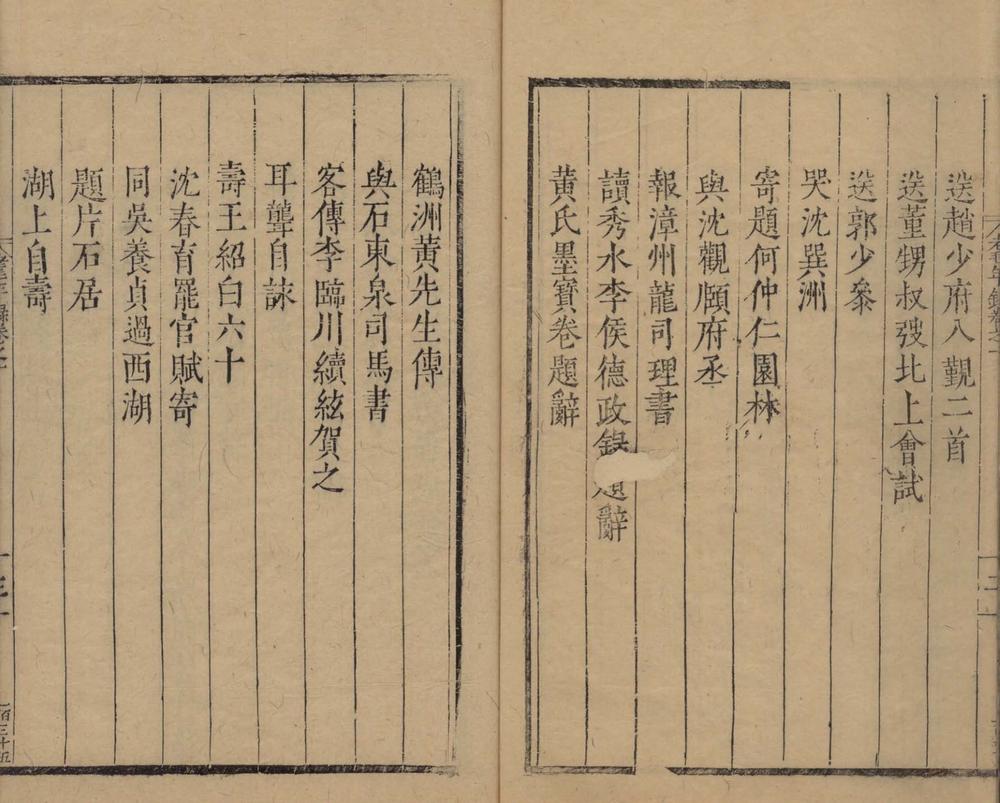 送趙少府入覲二首
送董甥叔弢北上會試
送郭少參
哭沈巽洲
寄題何仲仁園林
與沈觀頤府丞
報漳州龍司理書
讀秀水李侯德政錄題辭
黃氏墨寶卷題辭
鶴洲黃先生傳
與石東泉司馬書
客傳李臨川續絃賀之
耳聾自誄
壽王紹白六十
沈春育罷官賦寄
同吳養貞過西湖
題片石居
湖上自壽
一百三十五